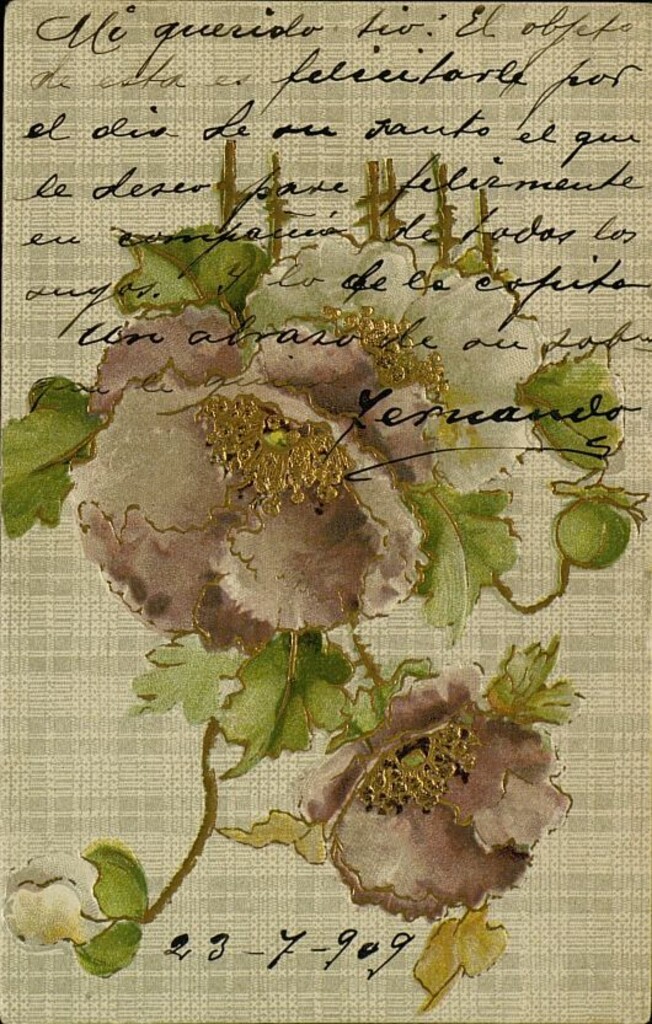 Mi querido tio: El objeto
de esta es felicitarle por
el dia de su santo el que
le deseo pase felizmente
en compañia de todos los
suyos. Y lo de la copita
Un abrazo de su sob
que le quiere
Fernando
23-7-909